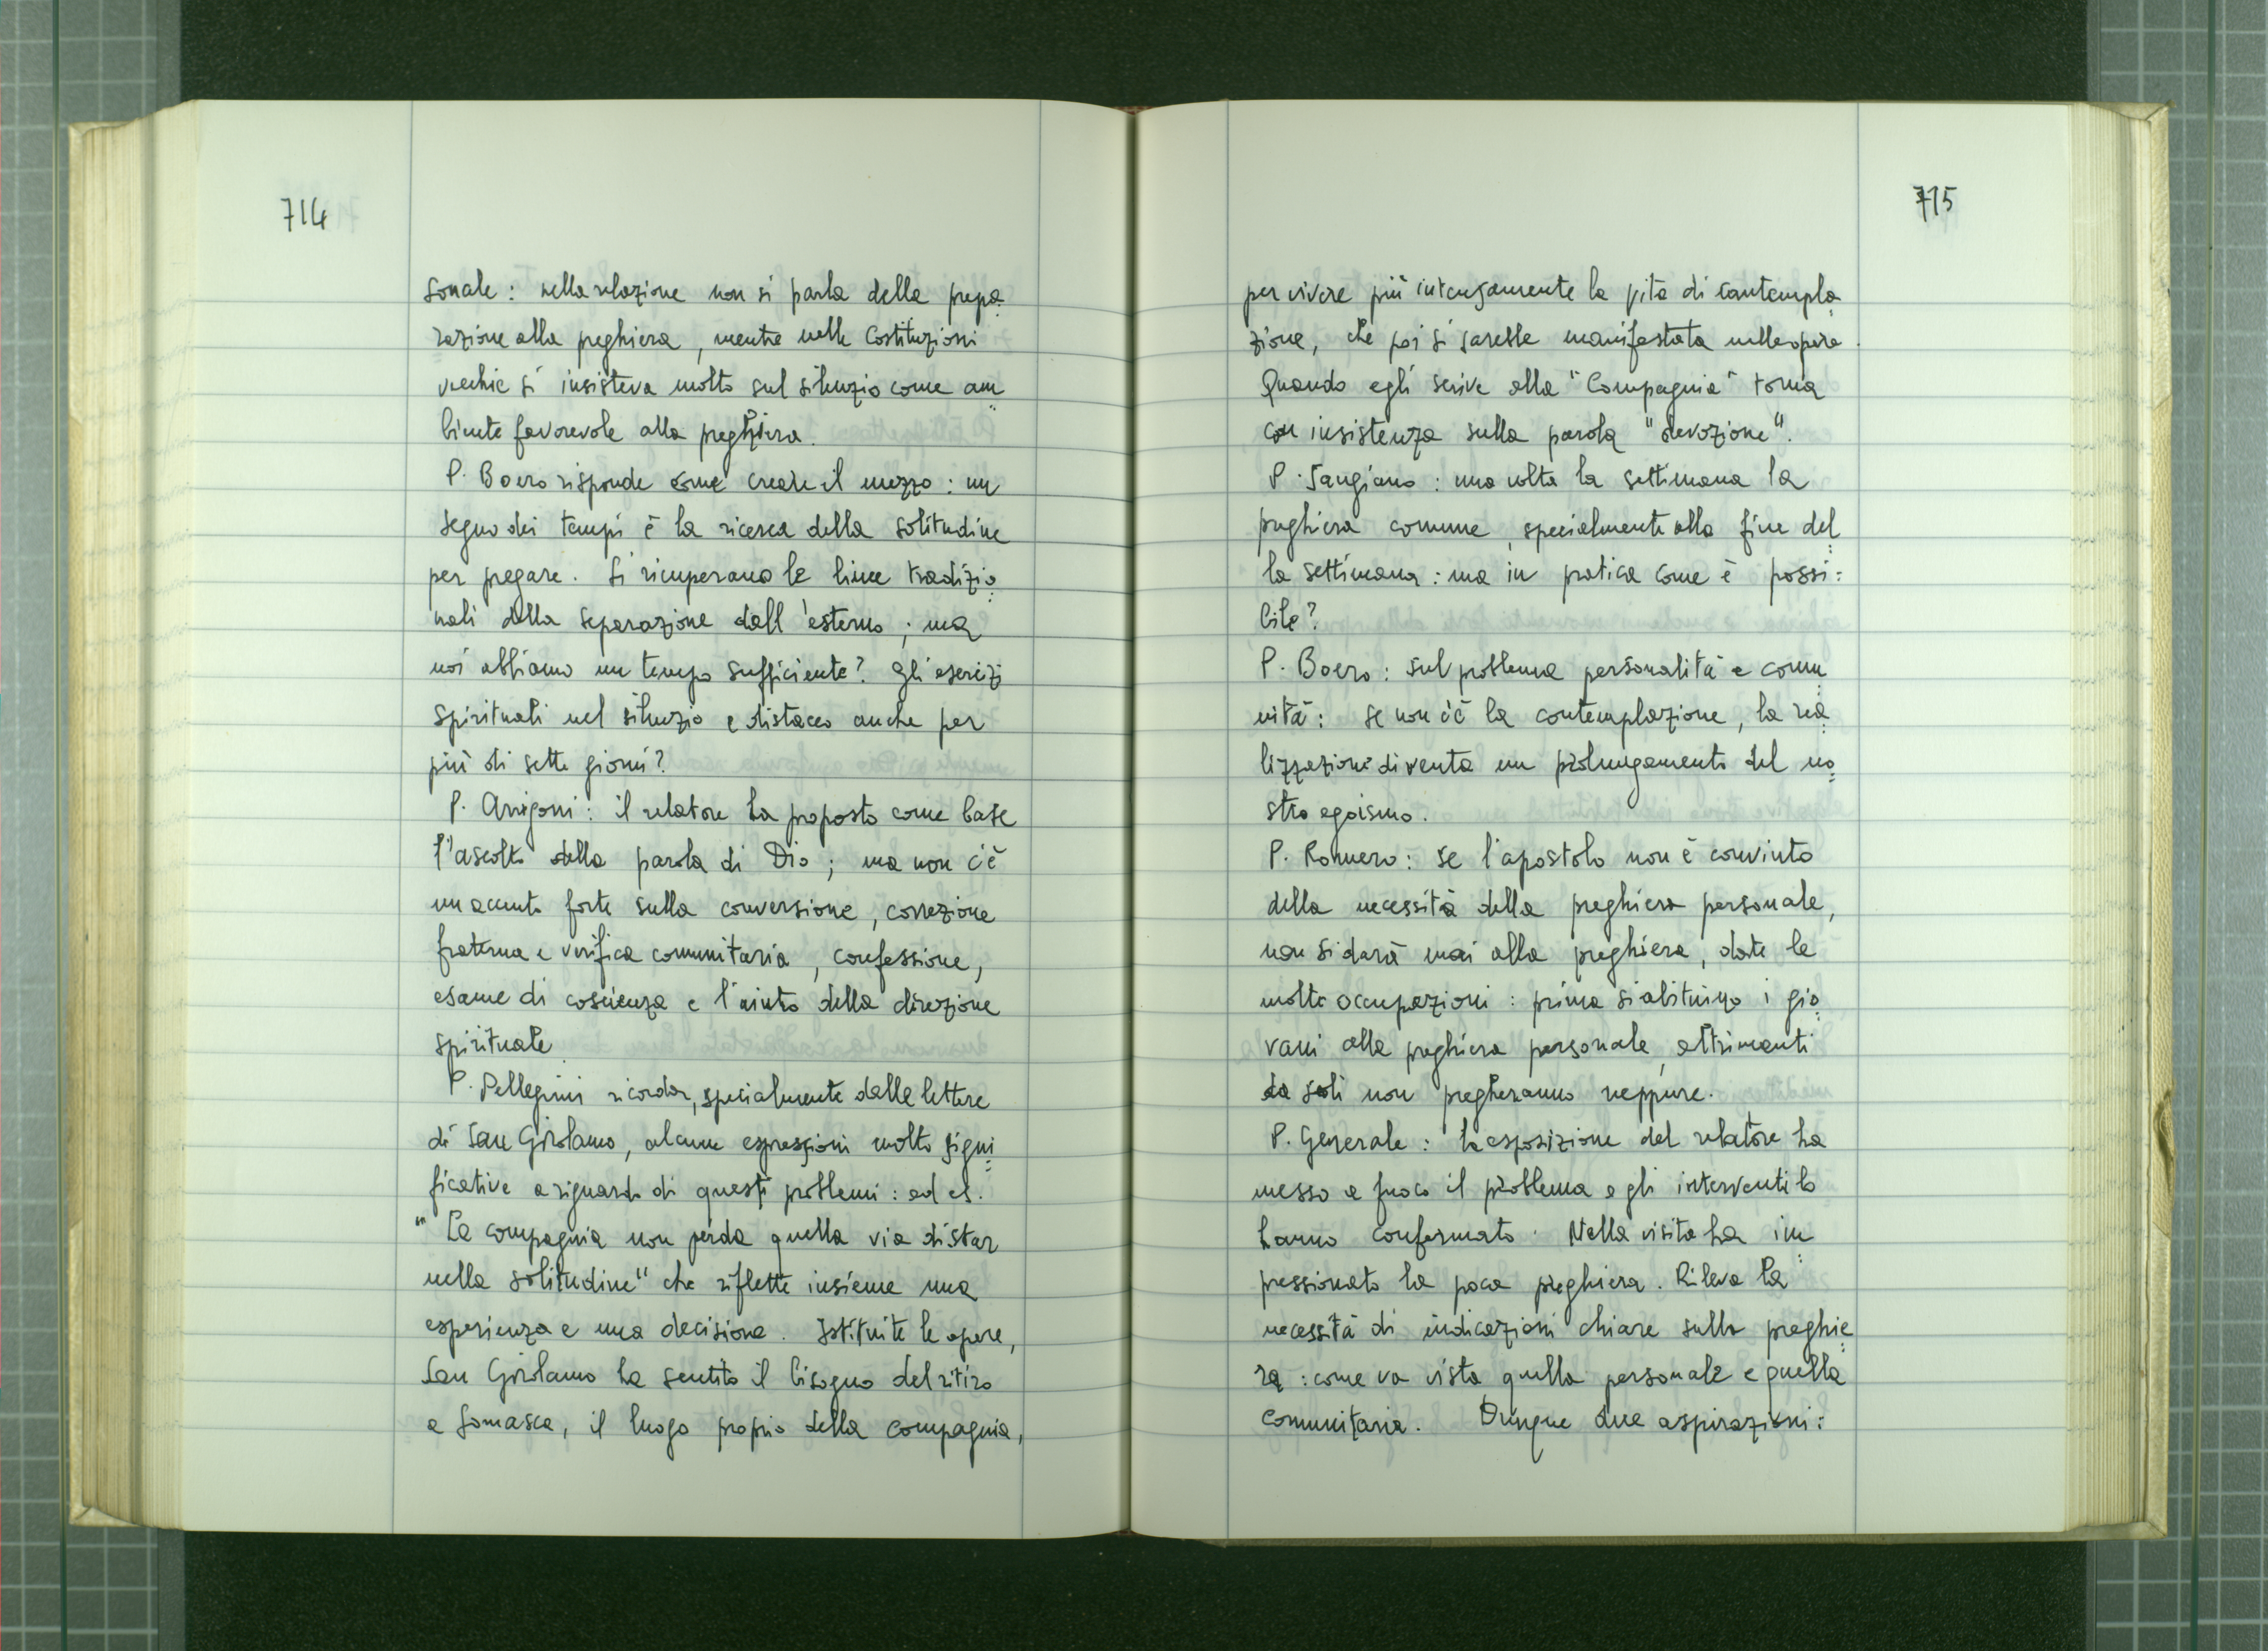 714
sonale: nella relazione non si parla della prepa
razione alla preghiera, mentre nelle Costituzioni
vecchie si insisteva molto sul silenzio come am
biente favorevole alla preghiera.
P. Boero risponde come creare il mezzo: un
segno dei tempi è la ricerca della solitudine
per pregare. Si ricuperano le linee tradizio
nali della separazione dall'esterno; ma
noi abbiamo un tempo sufficiente? Gli esercizi
spirituali nel silenzio e distacco anche per
più di sette giorni?
P. Arrigoni: il relatore ha proposto come base
l'ascolto della parola di Dio; ma non c'è
un accento forte sulla conversione, correzione
fraterna e verifica comunitaria, confessione,
esame di coscienza e l'aiuto della direzione
spirituale
P. Pellegrini ricorda, specialmente dalle lettere
di San Girolamo, alcune espressioni molto signi
ficative a riguardo di questi problemi: ad es.
"La compagnia non perda quella via di star
nella solitudine" che riflette insieme una
esperienza e una decisione. Istituite le opere,
San Girolamo ha sentito il bisogno del ritiro
a Somasca, il luogo proprio della compagnia,
715
per vivere più intensamente la vita di contempla
zione, che poi si sarebbe manifestata nelle opere.
Quando egli scrive alla "Compagnia" torna
con insistenza sulla parola "devozione".
P. Sangiano: una volta la settimana la
preghiera comune, specialmente alla fine del
la settimana: ma in pratica come è possi:
bile?
P. Boero: sul problema personalità e comu
nità: se non c'è la contemplazione, la rea
lizzazione diventa un prolungamento del no
stro egoismo.
P. Romero: se l'apostolo non è convinto
della necessità della preghiera personale,
non si darà mai alla preghiera, date le
molte occupazioni: prima si abituino i gio
vani alla preghiera personale, altrimenti
da soli non pregheranno neppure.
P. Generale: la esposizione del relatore ha
messo a fuoco il problema e gli interventi lo
hanno confermato. Nella visita ha im
pressionato la poca preghiera. Rileva la
necessità di indicazioni chiare sulla preghie
ra: come va vista quella personale e quella
comunitaria. Dunque due aspirazioni: